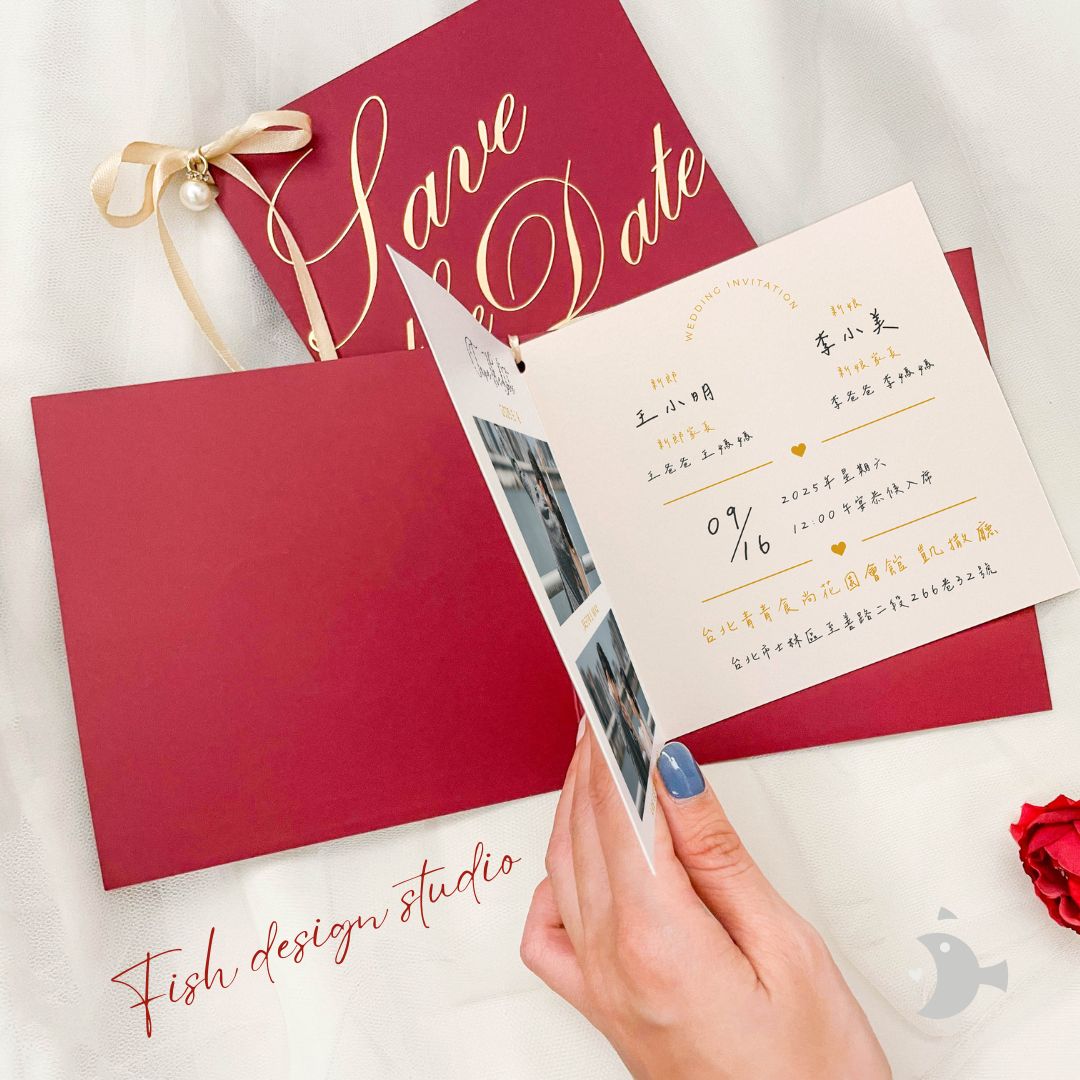 Save
the Date
WEDDING INVITATION
新郎
王小明
新郎家長
王爸爸 王媽媽
新娘
李小美
新娘家長
李爸爸 李媽媽
09/16
2025年星期六
12:00午宴恭候入席
台北青青食尚花園會館 凱撒廳
台北市士林區至善路二段266巷32號
Fish design studio